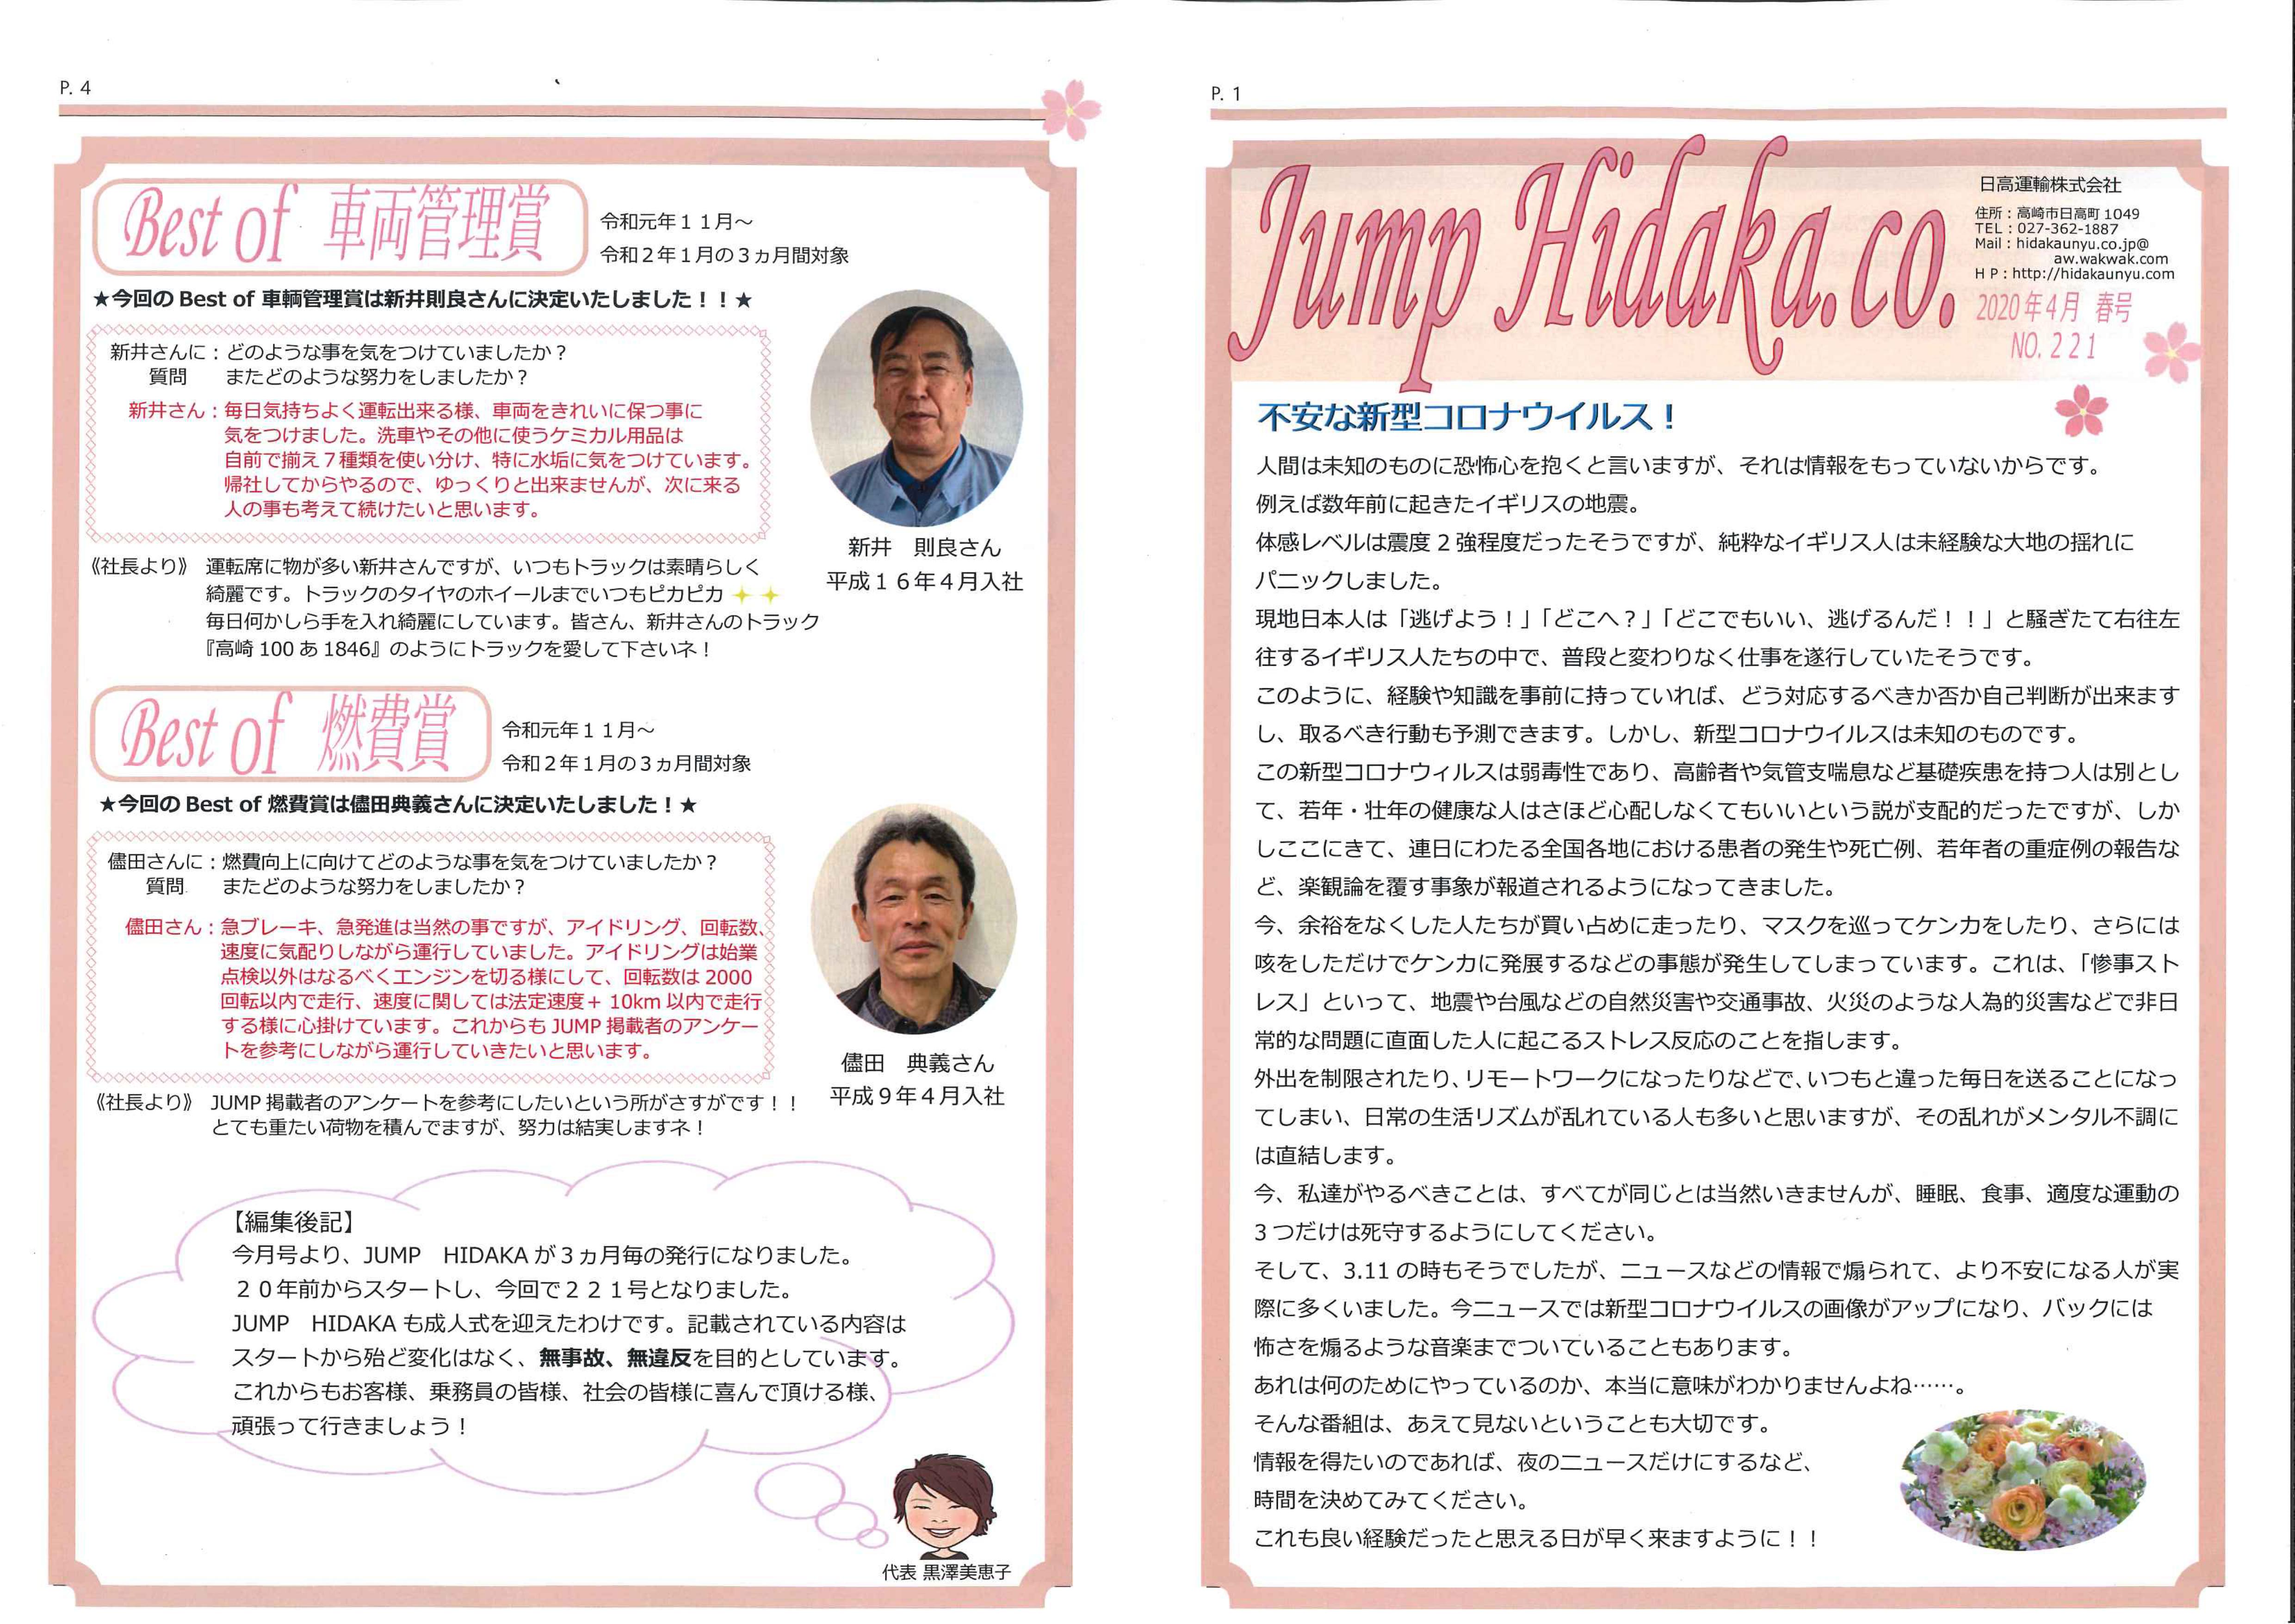 P. 4
Best of 車両管理賞
令和元年１１月～
令和２年１月の３ヵ月間対象
★今回の Best of 車輌管理賞は新井則良さんに決定いたしました！！★
新井さんに：どのような事を気をつけていましたか？
質問　またどのような努力をしましたか？
新井さん：毎日気持ちよく運転出来る様、車両をきれいに保つ事に
気をつけました。洗車やその他に使うケミカル用品は
自前で揃え７種類を使い分け、特に水垢に気をつけています。
帰社してからやるので、ゆっくりと出来ませんが、次に来る
人の事も考えて続けたいと思います。
新井　則良さん
平成１６年４月入社
《社長より》 運転席に物が多い新井さんですが、いつもトラックは素晴らしく
綺麗です。トラックのタイヤのホイールまでいつもピカピカ
毎日何かしら手を入れ綺麗にしています。皆さん、新井さんのトラック
『高崎 100 あ 1846』のようにトラックを愛して下さいネ！
Best of 燃費賞
令和元年１１月～
令和２年１月の３ヵ月間対象
★今回の Best of 燃費賞は儘田典義さんに決定いたしました！★
儘田さんに：燃費向上に向けてどのような事を気をつけていましたか？
質問　またどのような努力をしましたか？
儘田さん：急ブレーキ、急発進は当然の事ですが、アイドリング、回転数、
速度に気配りしながら運行していました。アイドリングは始業
点検以外はなるべくエンジンを切る様にして、回転数は 2000
回転以内で走行、速度に関しては法定速度＋ 10km 以内で走行
する様に心掛けています。これからも JUMP 掲載者のアンケー
トを参考にしながら運行していきたいと思います。
儘田　典義さん
平成９年４月入社
《社長より》 JUMP 掲載者のアンケートを参考にしたいという所がさすがです！！
とても重たい荷物を積んでますが、努力は結実しますネ！
【編集後記】
今月号より、JUMP　HIDAKA が３ヵ月毎の発行になりました。
２０年前からスタートし、今回で２２１号となりました。
JUMP　HIDAKA も成人式を迎えたわけです。記載されている内容は
スタートから殆ど変化はなく、無事故、無違反を目的としています。
これからもお客様、乗務員の皆様、社会の皆様に喜んで頂ける様、
頑張って行きましょう！
代表 黒澤美恵子
P. 1
Jump Hidaka.co.
日高運輸株式会社
住所：高崎市日高町 1049
TEL：027-362-1887
Mail：hidakaunyu.co.jp@
aw.wakwak.com
ＨＰ：http://hidakaunyu.com
2020年4月 春号
NO. 2 2 1
不安な新型コロナウイルス！
人間は未知のものに恐怖心を抱くと言いますが、それは情報をもっていないからです。
例えば数年前に起きたイギリスの地震。
体感レベルは震度２強程度だったそうですが、純粋なイギリス人は未経験な大地の揺れに
パニックしました。
現地日本人は「逃げよう！」「どこへ？」「どこでもいい、逃げるんだ！！」と騒ぎたて右往左
往するイギリス人たちの中で、普段と変わりなく仕事を遂行していたそうです。
このように、経験や知識を事前に持っていれば、どう対応するべきか否か自己判断が出来ます
し、取るべき行動も予測できます。しかし、新型コロナウイルスは未知のものです。
この新型コロナウィルスは弱毒性であり、高齢者や気管支喘息など基礎疾患を持つ人は別とし
て、若年・壮年の健康な人はさほど心配しなくてもいいという説が支配的だったですが、しか
しここにきて、連日にわたる全国各地における患者の発生や死亡例、若年者の重症例の報告な
ど、楽観論を覆す事象が報道されるようになってきました。
今、余裕をなくした人たちが買い占めに走ったり、マスクを巡ってケンカをしたり、さらには
咳をしただけでケンカに発展するなどの事態が発生してしまっています。これは、「惨事スト
レス」といって、地震や台風などの自然災害や交通事故、火災のような人為的災害などで非日
常的な問題に直面した人に起こるストレス反応のことを指します。
外出を制限されたり、リモートワークになったりなどで、いつもと違った毎日を送ることになっ
てしまい、日常の生活リズムが乱れている人も多いと思いますが、その乱れがメンタル不調に
は直結します。
今、私達がやるべきことは、すべてが同じとは当然いきませんが、睡眠、食事、適度な運動の
３つだけは死守するようにしてください。
そして、3.11 の時もそうでしたが、ニュースなどの情報で煽られて、より不安になる人が実
際に多くいました。今ニュースでは新型コロナウイルスの画像がアップになり、バックには
怖さを煽るような音楽までついていることもあります。
あれは何のためにやっているのか、本当に意味がわかりませんよね……。
そんな番組は、あえて見ないということも大切です。
情報を得たいのであれば、夜のニュースだけにするなど、
時間を決めてみてください。
これも良い経験だったと思える日が早く来ますように！！